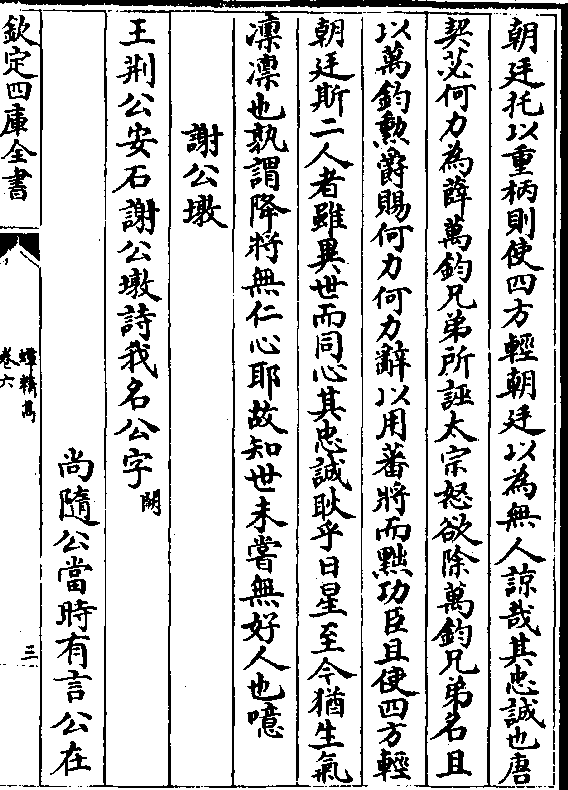 朝廷托以重柄則使四方輕朝廷以為無人諒哉其忠誠也唐
契苾何力為薛萬鈞兄弟所誣太宗怒欲除萬鈞兄弟名且
以萬鈞勲爵賜何力何力辭以用蕃將而黜功臣且使四方輕
朝廷斯二人者雖異世而同心其忠誠耿乎日星至今猶生氣
凛凛也孰謂降將無仁心耶故知世未嘗無好人也噫
謝公墩
王荆公安石謝公墩詩我名公字闕
尚隨公當時有言公在
欽定四庫全書
蟫精雋
卷六
三